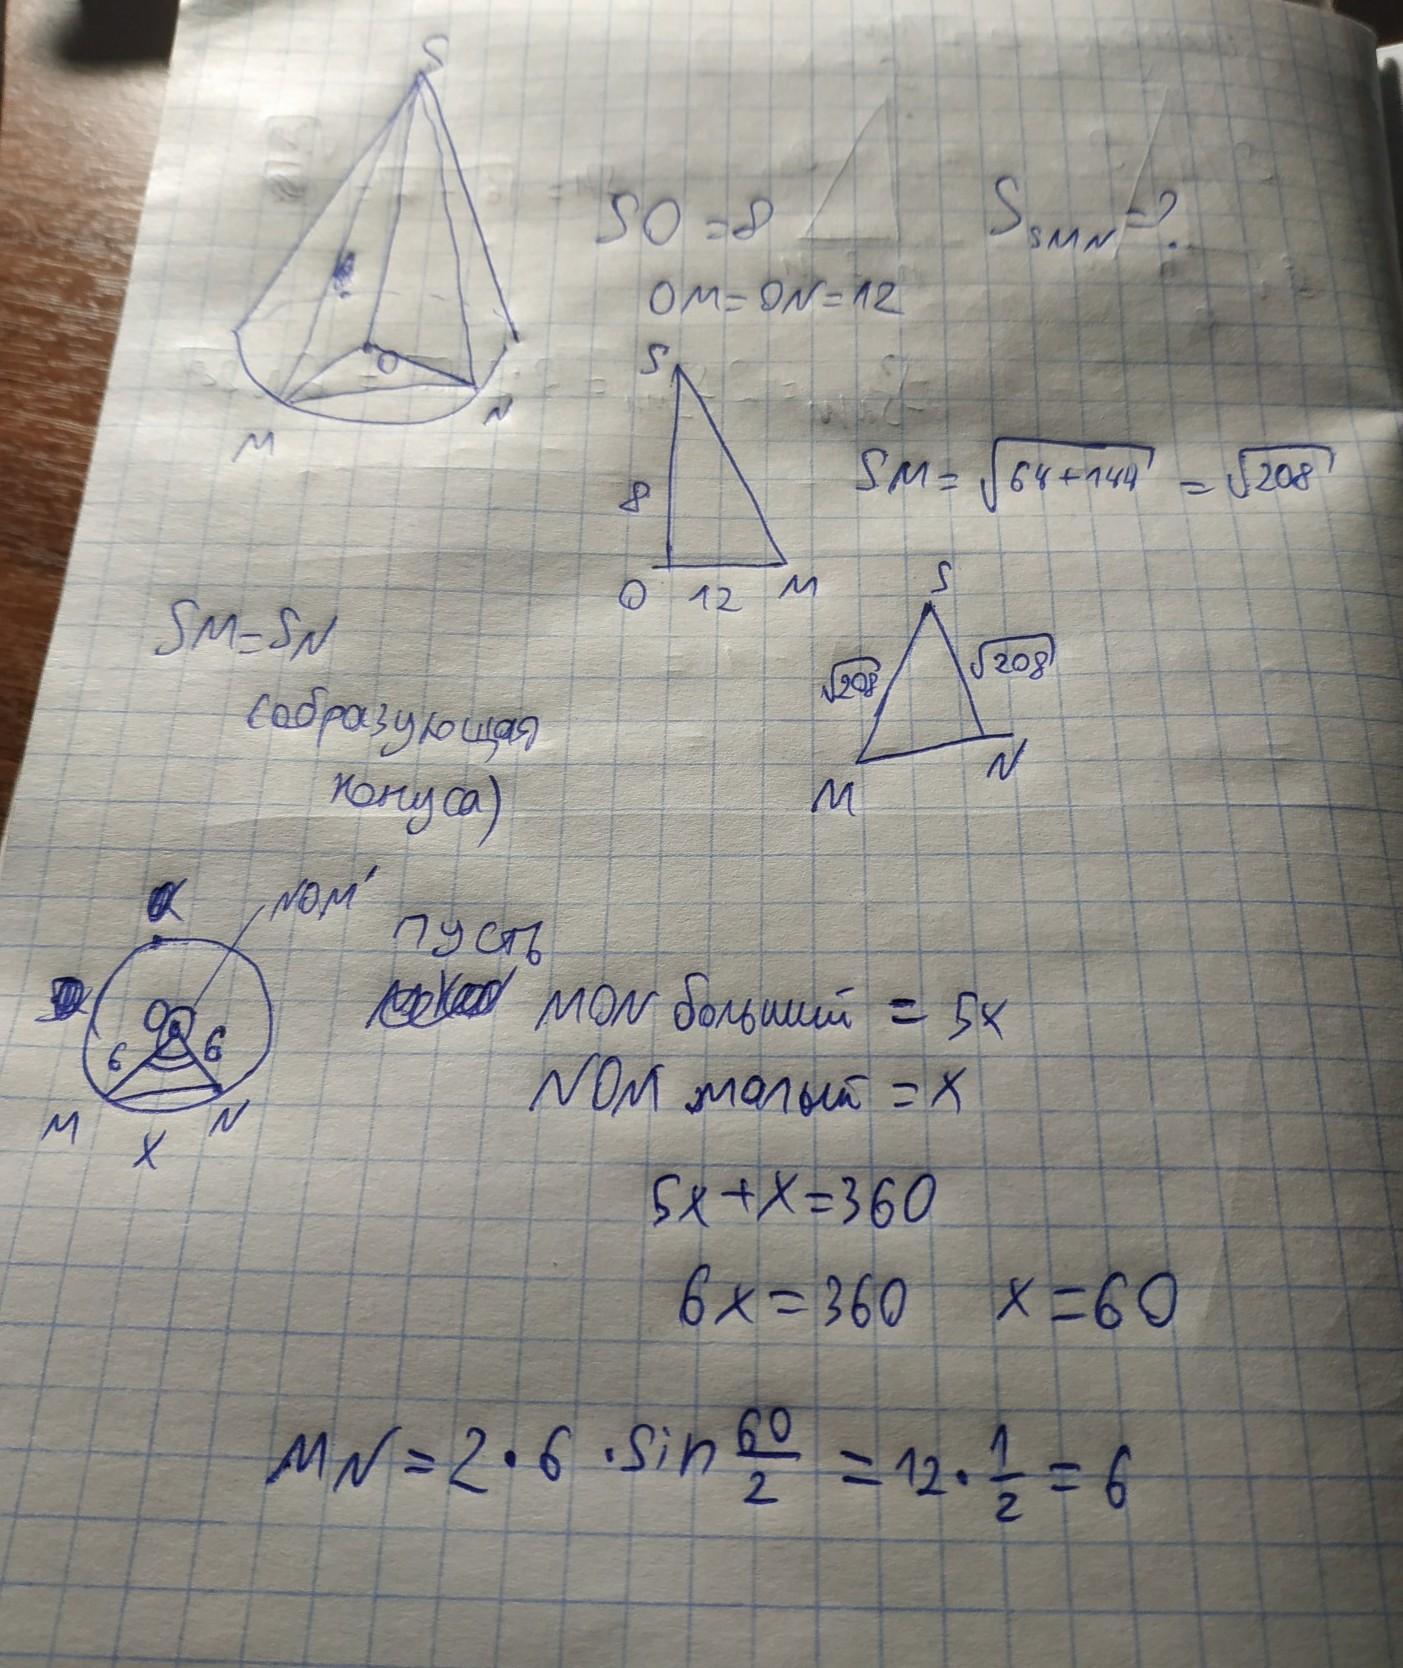 S
SO = 8
S_SMN = ?
OM = ON = 12
O
M
N
S
8
O 12 M
SM = √64+144 = √208
SM = SN
(образующая
конуса)
S
√208 √208
M N
NOM'
O
6 6
M N
X
пусть
MON больший = 5x
NOM малый = x
5x + x = 360
6x = 360 x = 60
MN = 2 · 6 · sin 60/2 = 12 · 1/2 = 6